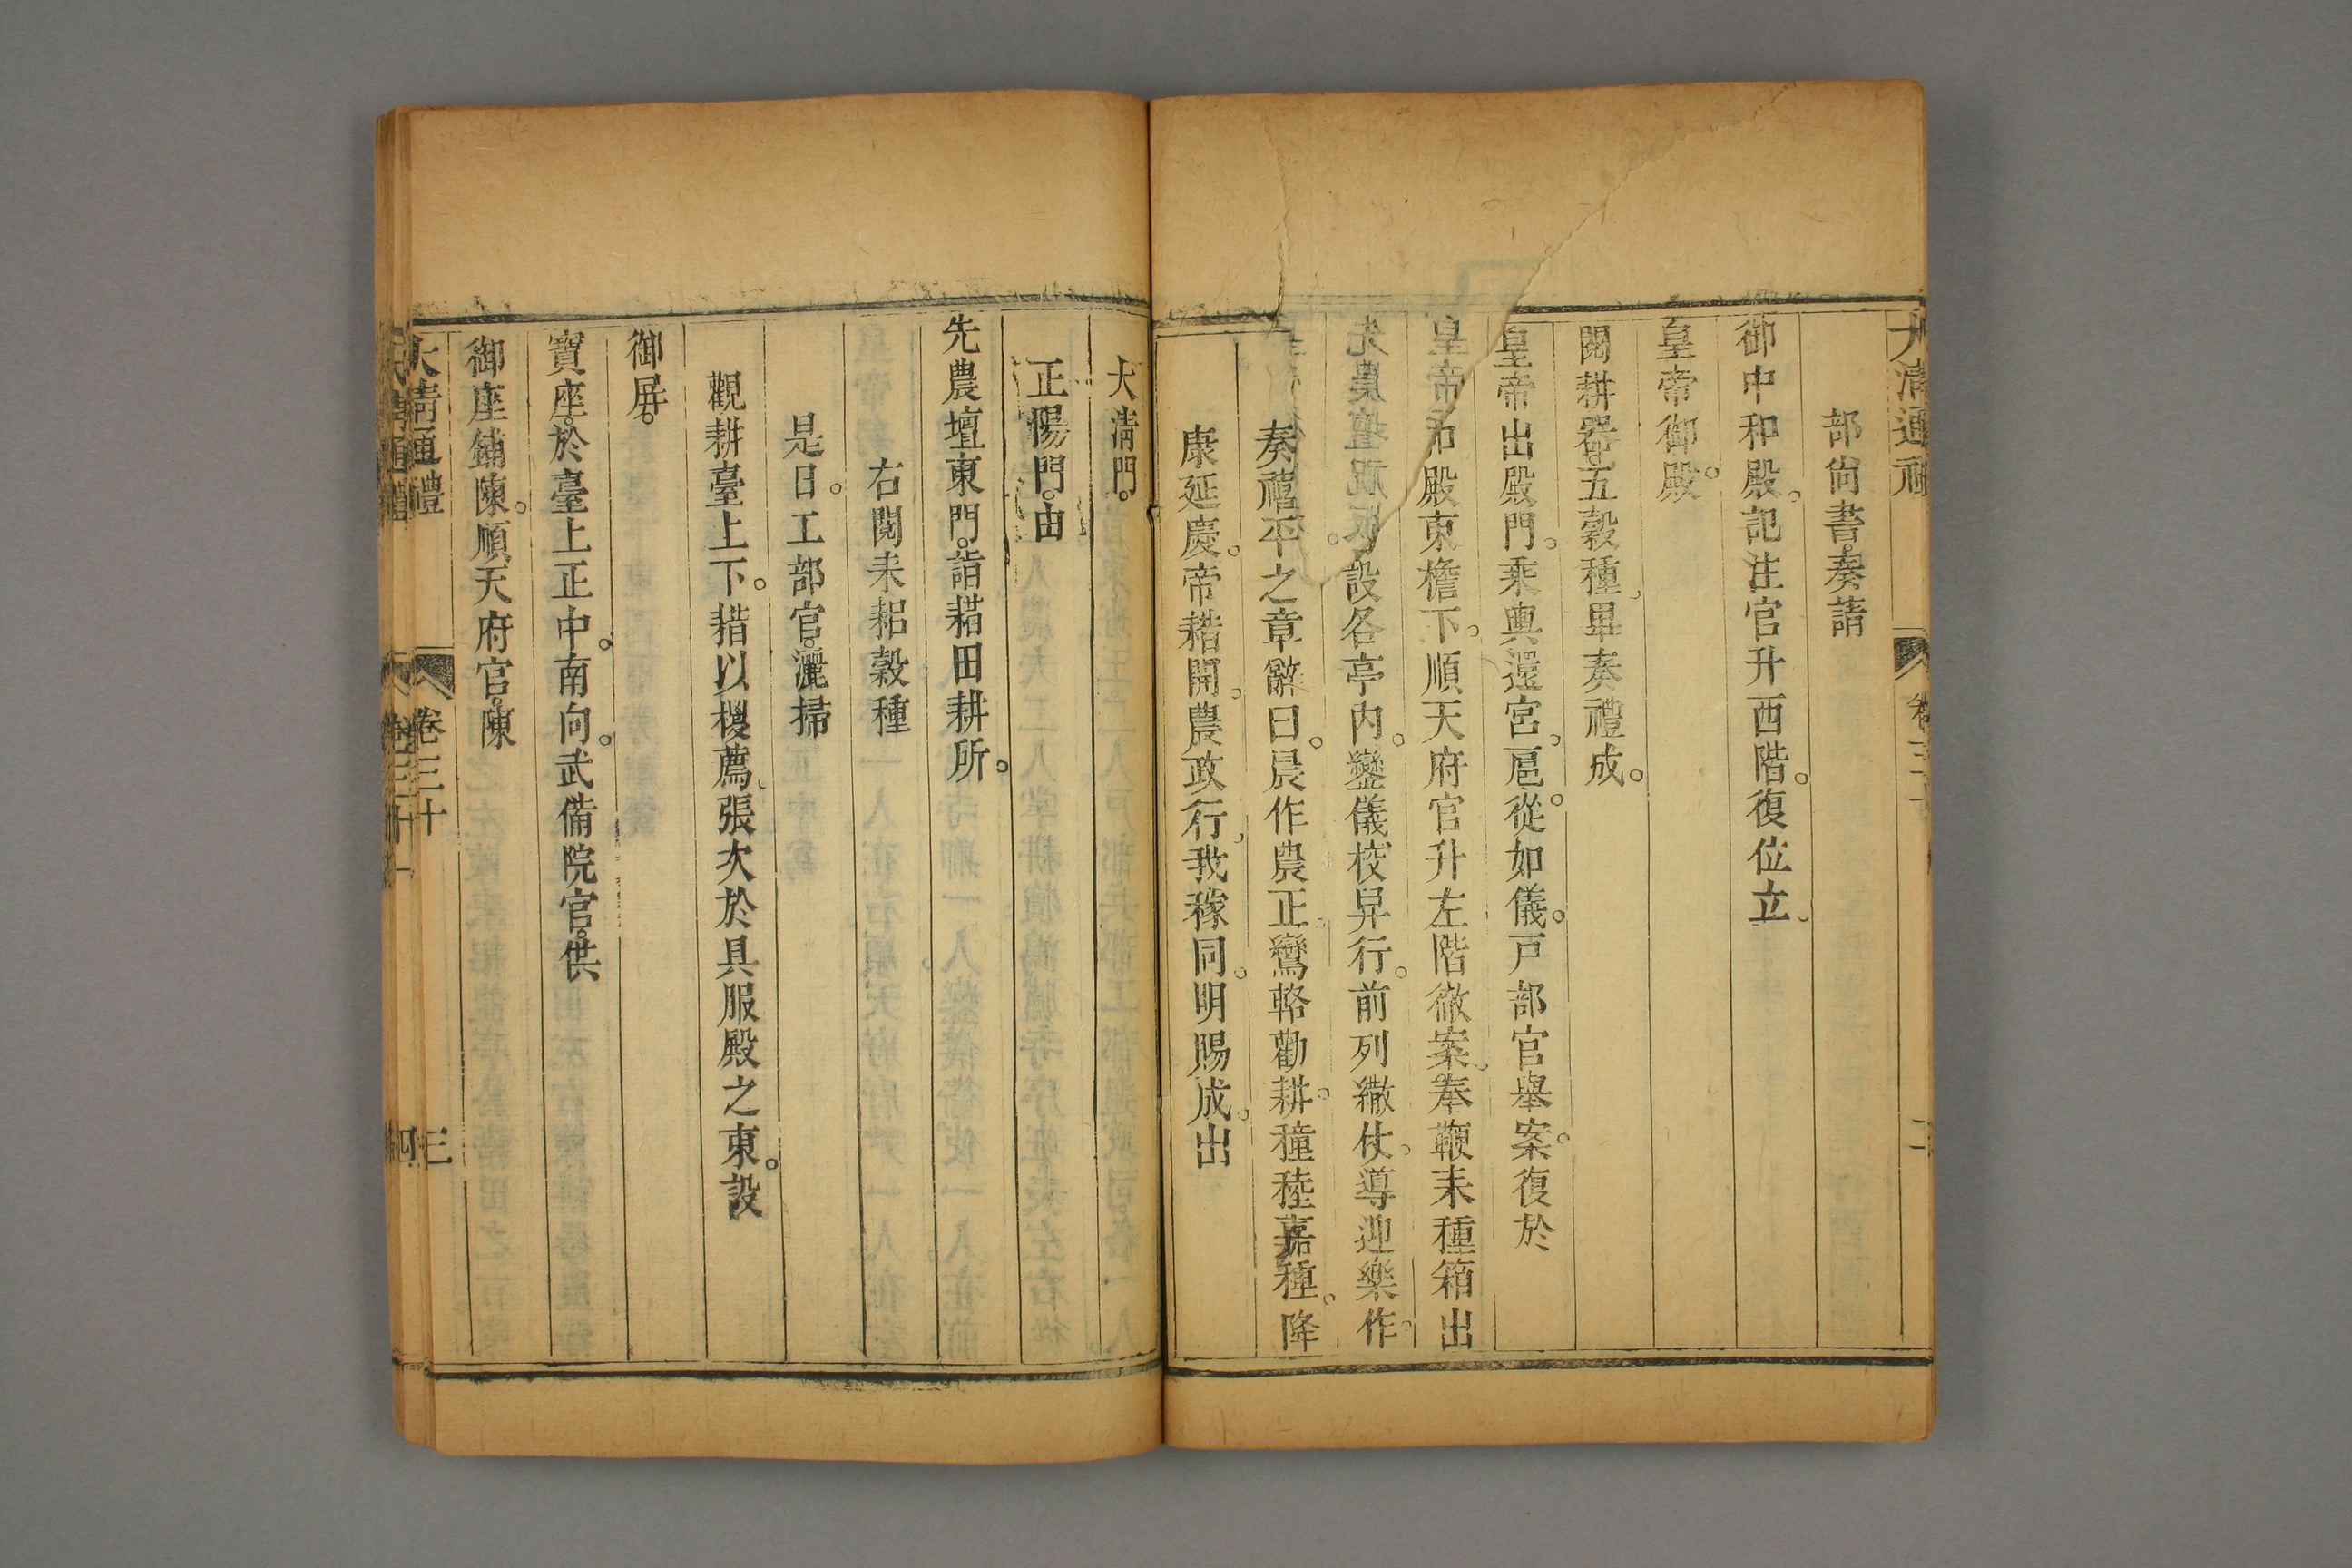 大清通禮 卷三十 二
部尚書奏請
御中和殿。記注官升西階。復位立
皇帝御殿。
閱耕器。五穀種。畢奏禮成。
皇帝出殿門。乘輿還宮。扈從如儀。戶部官舉案。復於
殿東檐下。順天府官升左階徹案。奉鞭耒種箱出
設各亭内。鑾儀校舁行。前列繖仗。導迎樂作。
奏禧平之章。辭曰。晨作農正。鸞輅勸耕。穜稑嘉種。降
康延慶。帝耤開。農政行。我稼同。明賜成。出
大清門。
正陽門。由
先農壇東門。詣耤田耕所。
右閱耒耜穀種
是日。工部官。灑掃
觀耕臺上下。耤以椶薦。張次於具服殿之東。設
御屏。
寶座。於臺上正中。南向。武備院官。供
御座鋪陳。順天府官。陳
大清通禮 卷三十 三